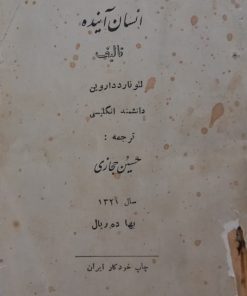 انسان آینده
تالیف
لئونارد داروین
دانشمند انگلیسی
ترجمه :
حسین حجازی
سال ۱۳۲۱
بها ده ریال
چاپ خودکار ایران